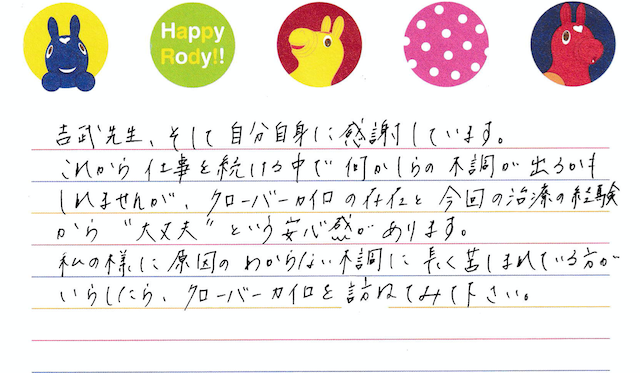 Happy
Rody!!
吉武先生、そして自分自身に感謝しています。
これから仕事を続ける中で何かしらの不調が出るかも
しれませんが、クローバーカイロの存在と今回の治療の経験
から“大丈夫”という安心感があります。
私の様に原因のわからない不調に長く苦しまれている方が
いらしたら、クローバーカイロを訪ねてみて下さい。